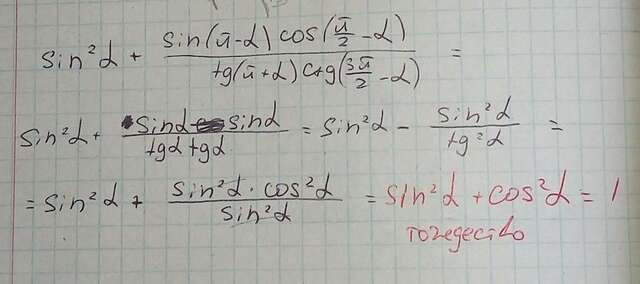 sin²α + sin(π-α) cos(π/2 - α) / tg(π+α) ctg(3π/2 - α) =
sin²α + sinα sinα / tgα tgα = sin²α - sin²α / tg²α =
= sin²α + sin²α · cos²α / sin²α = sin²α + cos²α = 1